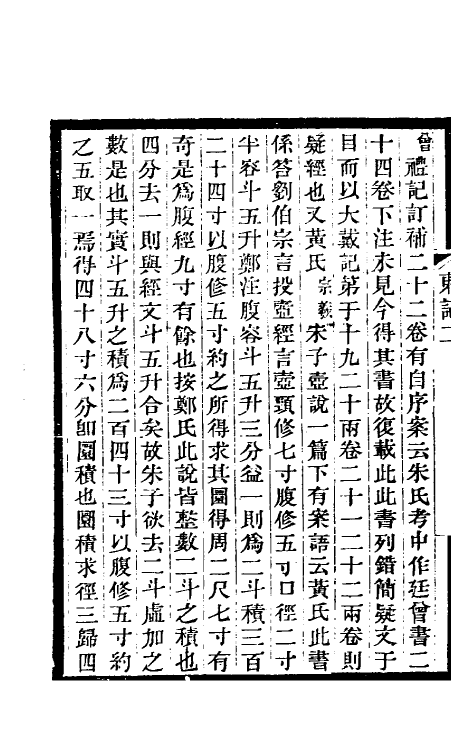 曾禮記訂補二十二卷有自序案云朱氏考中作廷曾書二
十四卷下注未見今得其書故復載此此書列錯簡疑文于
目而以大戴記第于十九二十兩卷二十一二十二兩卷則
疑經也又黃氏宗羲朱子壺說一篇下有案語云黃氏此書
係答劉伯宗言投壺經言壺頸修七寸腹修五寸口徑二寸
半容斗五升鄭注腹容斗五升三分益一則為二斗積三百
二十四寸以腹修五寸約之所得求其圓得周二尺七寸有
奇是為腹經九寸有餘也按鄭氏此說皆整數二斗之積也
四分去一則與經文斗五升合矣故朱子欲去二斗虛加之
數是也其實斗五升之積為二百四十三寸以腹修五寸約
之五取一焉得四十八寸六分卽圓積也圓積求徑三歸四